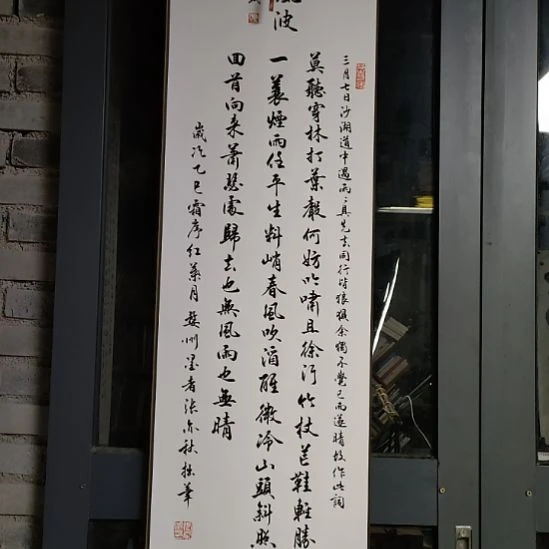 波
三月七日沙湖道中遇雨〻具先去同行皆狼狽余獨不覺已而遂晴故作此詞
莫聽穿林打葉聲何妨吟嘯且徐行竹杖芒鞋輕勝
一蓑煙雨任平生料峭春風吹酒醒微冷山頭斜照
回首向來蕭瑟處歸去也無風雨也無晴
歲次乙巳霜序紅葉月婺州墨者張亦秋拙筆